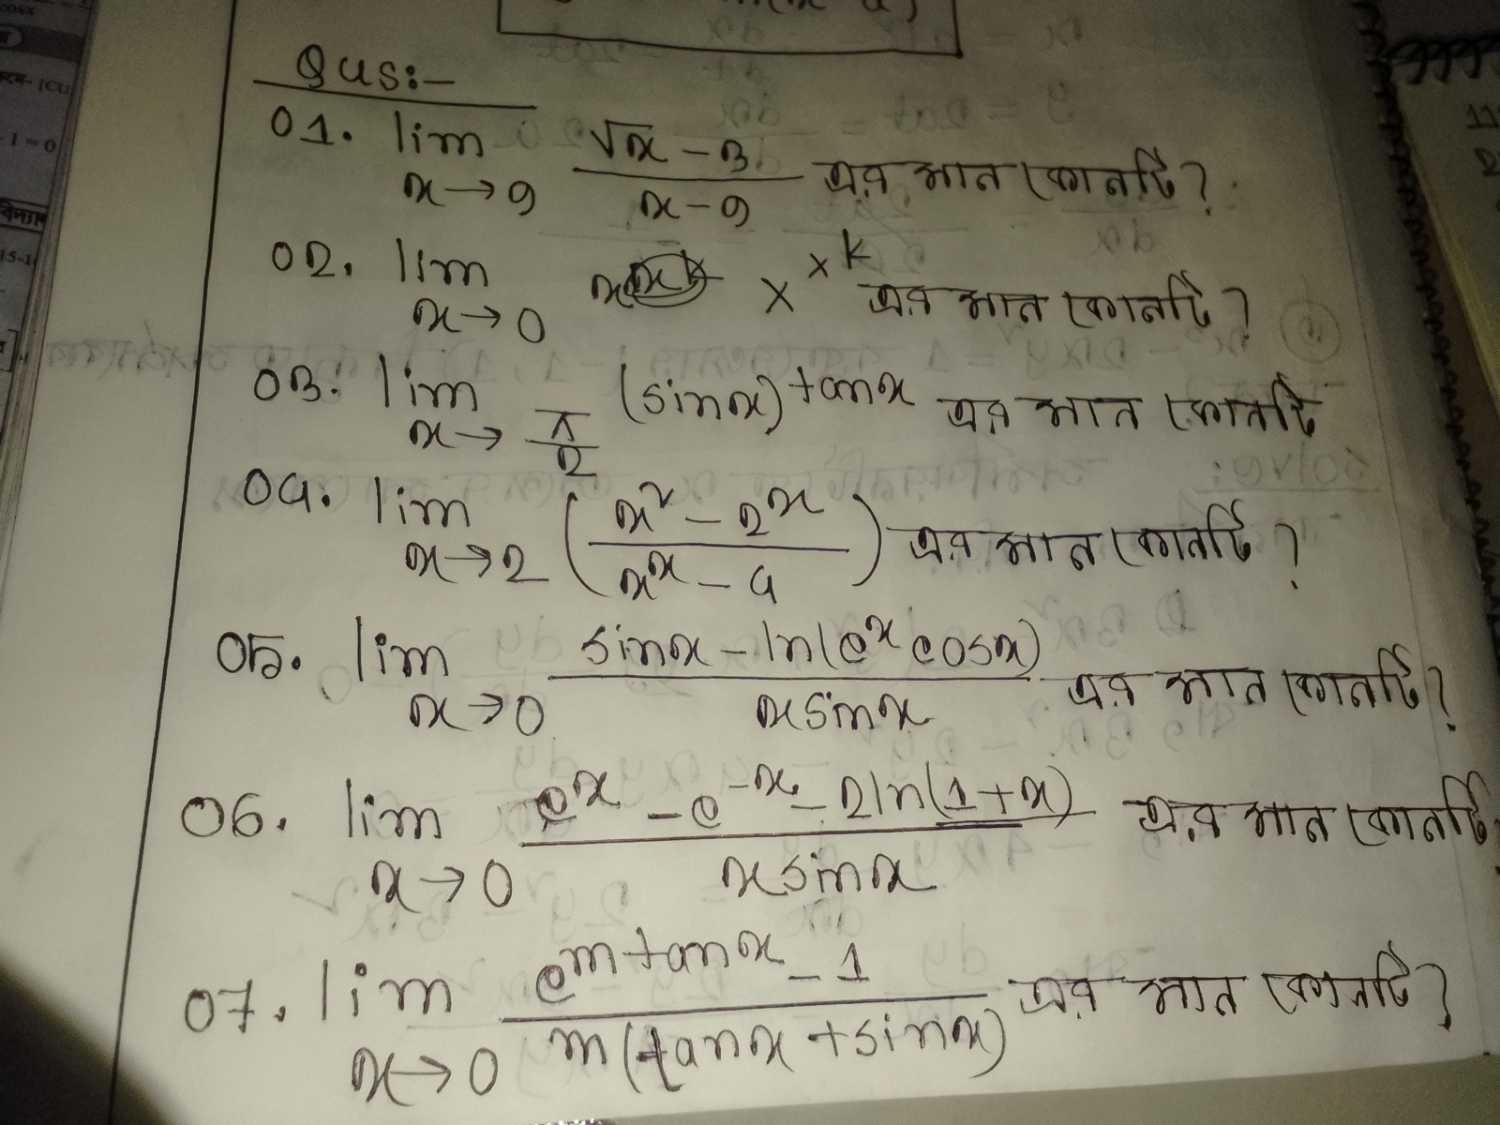 Qus:-
01. lim x→9 (√x - 3)/(x - 9) এর মান কোনটি?
02. lim x→0 x^x^k এর মান কোনটি?
03. lim x→π/2 (sinx)^tanx এর মান কোনটি
04. lim x→2 ((x² - 2^x)/(x^x - 4)) এর মান কোনটি?
05. lim x→0 (sinx - ln(e^x cosx))/(xsinx) এর মান কোনটি?
06. lim x→0 (e^x - e^-x - 2ln(1+x))/(xsinx) এর মান কোনটি
07. lim x→0 (e^mtanx - 1)/(m(tanx + sinx)) এর মান কোনটি?